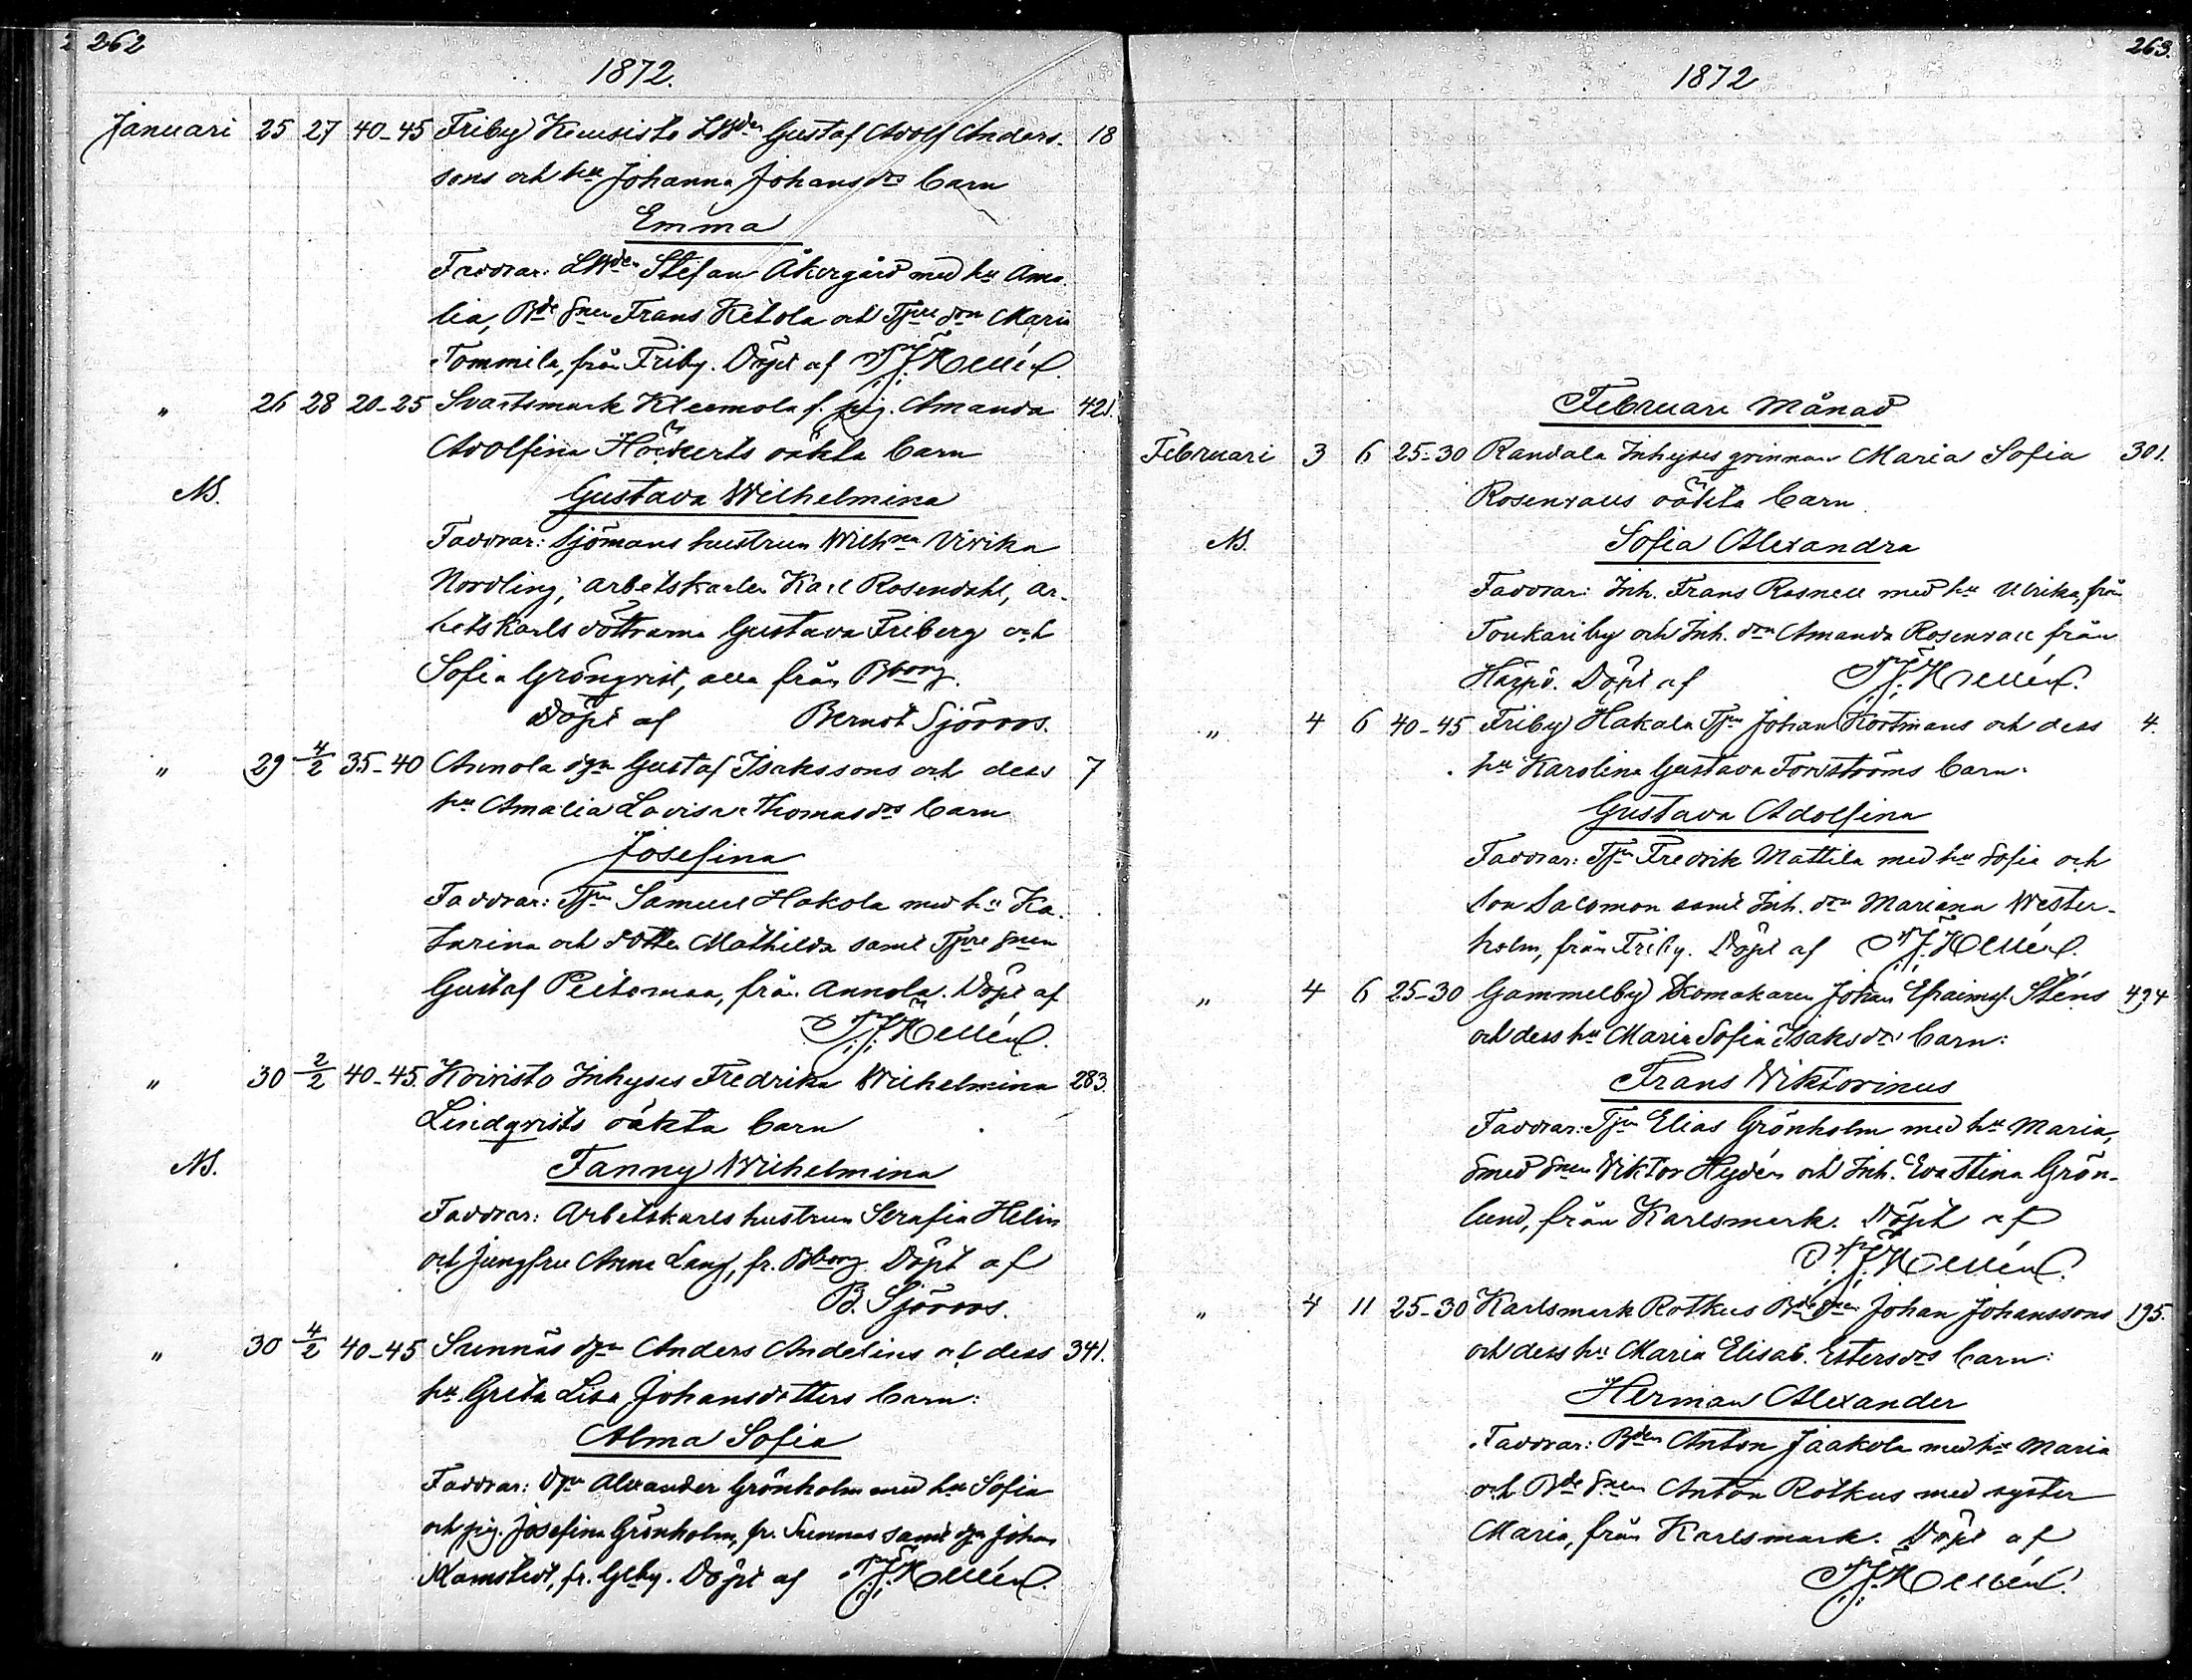 262
1872.
Januari 25 27 40-45 Friby Kiviristo LBden Gustaf Adolf Anders- 18
sons och hu Johanna Johansdrs barn
Emma
Faddrar: LBden Stefan Åkergård med hu Ama-
lia, Bde Snen Frans Ketola och Tjre drn Maria
Tommila, från Friby. Döpt af F.J. Hellén.
" 26 28 20-25 Svartsmark Kleemola f. pig. Amanda 421.
Adolfina Höckerts oäkta barn
NB. Gustava Wilhelmina
Faddrar: Sjömans hustrun Wilhna Vivika
Nordling, arbetskarlen Karl Rosendahl, ar-
betskarls döttrarna Gustava Friberg och
Sofia Grönqvist, alla från Bborg.
Döpt af Berndt Sjöroos.
" 29 4/2 35-40 Annola dgn Gustaf Isakssons och dess 7
hu Amalia Lovisa Thomasdrs barn
Josefina
Faddrar: Tjn Samuel Hakola med hu Ka-
tarina och dotter Mathilda samt Tjre Snen
Gustaf Peitomaa, från Annola. Döpt af
F.J. Hellén.
" 30 2/2 40-45. Koivisto Inhyses Fredrika Wilhelmina 283.
Lindqvists oäkta barn
NB. Fanny Wilhelmina
Faddrar: Arbetskarls hustrun Serafia Helin
och jungfru Anna Lang, fr. Bborg. Döpt af
B. Sjöroos.
" 30 4/2 40-45 Sunnäs dgn Anders Andelins och dess 341.
hu Greta Lisa Johansdotters barn:
Alma Sofia
Faddrar: Dgn Alexander Grönholm med hu Sofia
och pig. Josefina Grönholm, fr. Sunnäs samt dgn Johan
Kamstedt, fr. Glby. Döpt af F.J. Hellén.
263.
1872
Februari Månad
Februari 3 6 25-30 Randala Inhyses qvinnan Maria Sofia 301.
Rosenvalls oäkta barn
NB. Sofia Alexandra
Faddrar: Inh. Frans Rosnell med hu Ulrika, från
Toukariby och Inh. drn Amanda Rosenvall från
Härpö. Döpt af F.J. Hellén.
" 4 6 40-45 Friby Hakala Tjn Johan Kortmans och dess 4.
hu Karolina Gustava Forsströms barn.
Gustava Adolfina
Faddrar: Tjn Fredrik Mattila med hu Sofia och
son Salomon samt Inh. drn Mariana Wester-
holm, från Friby. Döpt af F.J. Hellén.
" 4 6 25-30 Gammelby Skomakaren Johan Efraimsf. Sténs 494
och dess hu Maria Sofia Isaksdrs barn:
Frans Wiktorinus
Faddrar: Tjn Elias Grönholm med hu Maria,
Smed Snen Wiktor Hydén och Inh. Eva Stina Grön-
lund, från Karlsmark. Döpt af
F.J. Hellén.
" 4 11 25-30 Karlsmark Rotkus Bde Snen Johan Johanssons 195.
och dess hu Maria Elisab. Estersdrs barn:
Herman Alexander
Faddrar: Bden Anton Jaakola med hu Maria
och Bde Snen Anton Rotkus med syster
Maria, från Karlsmark. Döpt af
F.J. Hellén.